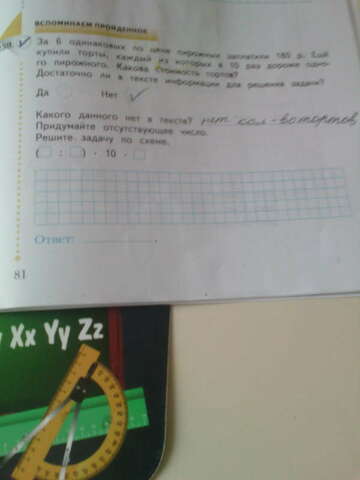 ВСПОМИНАЕМ ПРОЙДЕННОЕ
За 6 одинаковых по цене пирожных заплатили 180 р. Ещё
купили торты, каждый из которых в 10 раз дороже одно-
го пирожного. Какова стоимость тортов?
Достаточно ли в тексте информации для решения задачи?
Да Нет ✓
Какого данного нет в тексте? нет кол-во тортов
Придумайте отсутствующее число.
Решите задачу по схеме.
(□ : □) · 10 · □
Ответ:
81
Xx Yy Zz